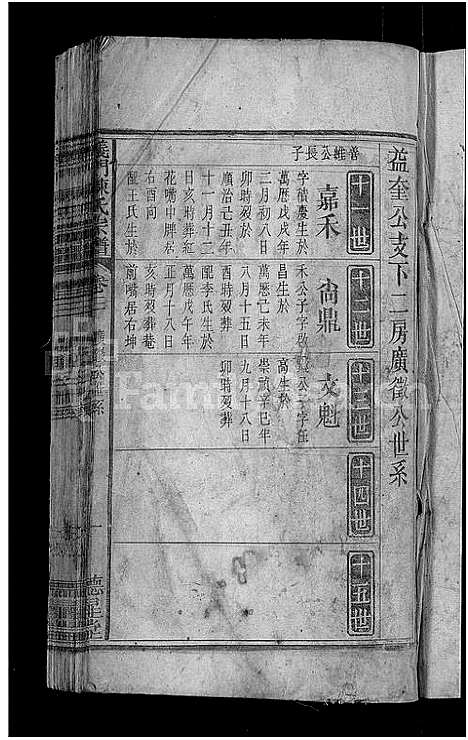 益奎公支下二房廣徵公世系
十一世
十二世
十三世
十四世
十五世
普維公長子
嘉禾
字積慶生於
萬歷戊戌年
二月初八日
卯時歿於
順治己丑年
十一月十三
日亥時葬紅
花嘴中脾
右酉向
配王氏生於
尚鼎
禾公子字啟
昌生於
萬歷己未年
八月十五日
酉時歿葬
配李氏生於
萬歷戊午年
正月十八日
亥時歿葬菴
前嘴居右坤
文魁
公子字任
高生於
崇禎辛巳年
九月十八日
卯時歿葬
義門陳氏宗譜
卷二
廣徵公世系
一
德星堂